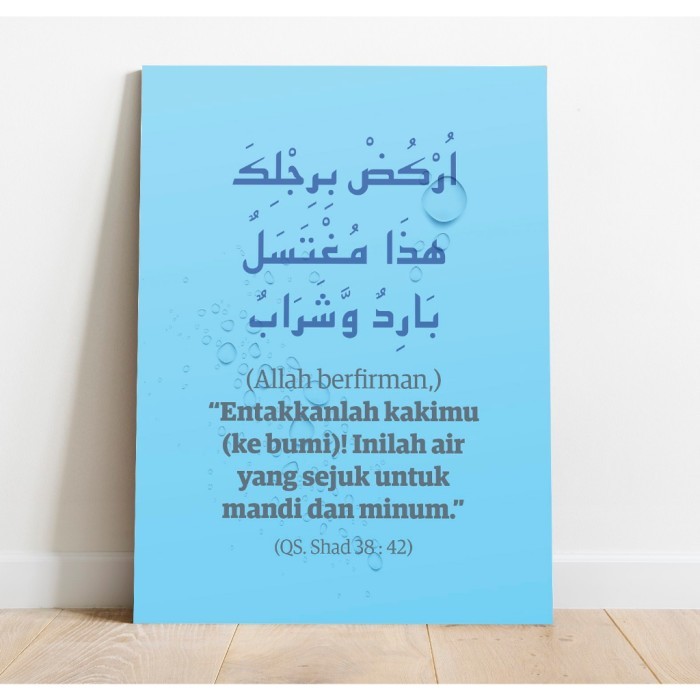 اُرْكُضْ بِرِجْلِكَ
هذَا مُغْتَسَلٌ
بَارِدٌ وَّشَرَابٌ
(Allah berfirman,)
“Entakkanlah kakimu
(ke bumi)! Inilah air
yang sejuk untuk
mandi dan minum.”
(QS. Shad 38 : 42)